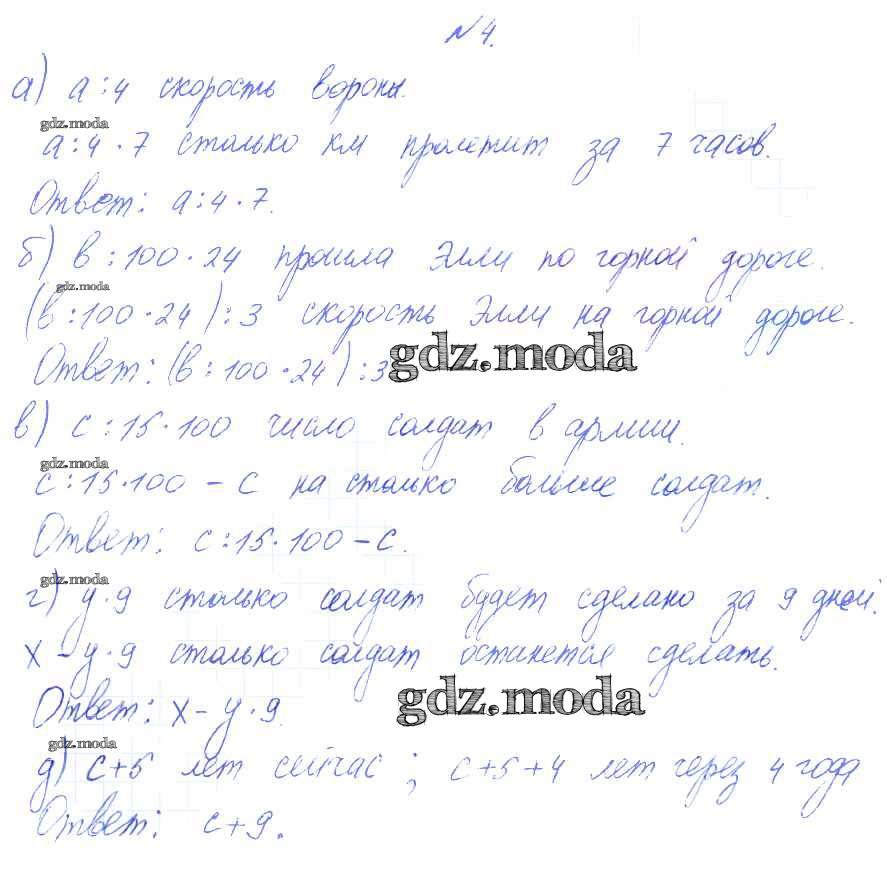 №4.
а) a:4 скорость вороны.
gdz.moda
a:4·7 столько км пролетит за 7 часов.
Ответ: a:4·7.
б) в:100·24 прошла Элли по горной дороге.
gdz.moda
(в:100·24):3 скорость Элли на горной дороге.
Ответ: (в:100·24):3
gdz.moda
в) с:15·100 число солдат в армии.
gdz.moda
с:15·100-с на столько больше солдат.
Ответ: с:15·100-с.
gdz.moda
г) y·9 столько солдат будет сделано за 9 дней.
x-y·9 столько солдат останется сделать.
Ответ: x-y·9.
gdz.moda
gdz.moda
д) с+5 лет сейчас; с+5+4 лет через 4 года
Ответ: с+9.